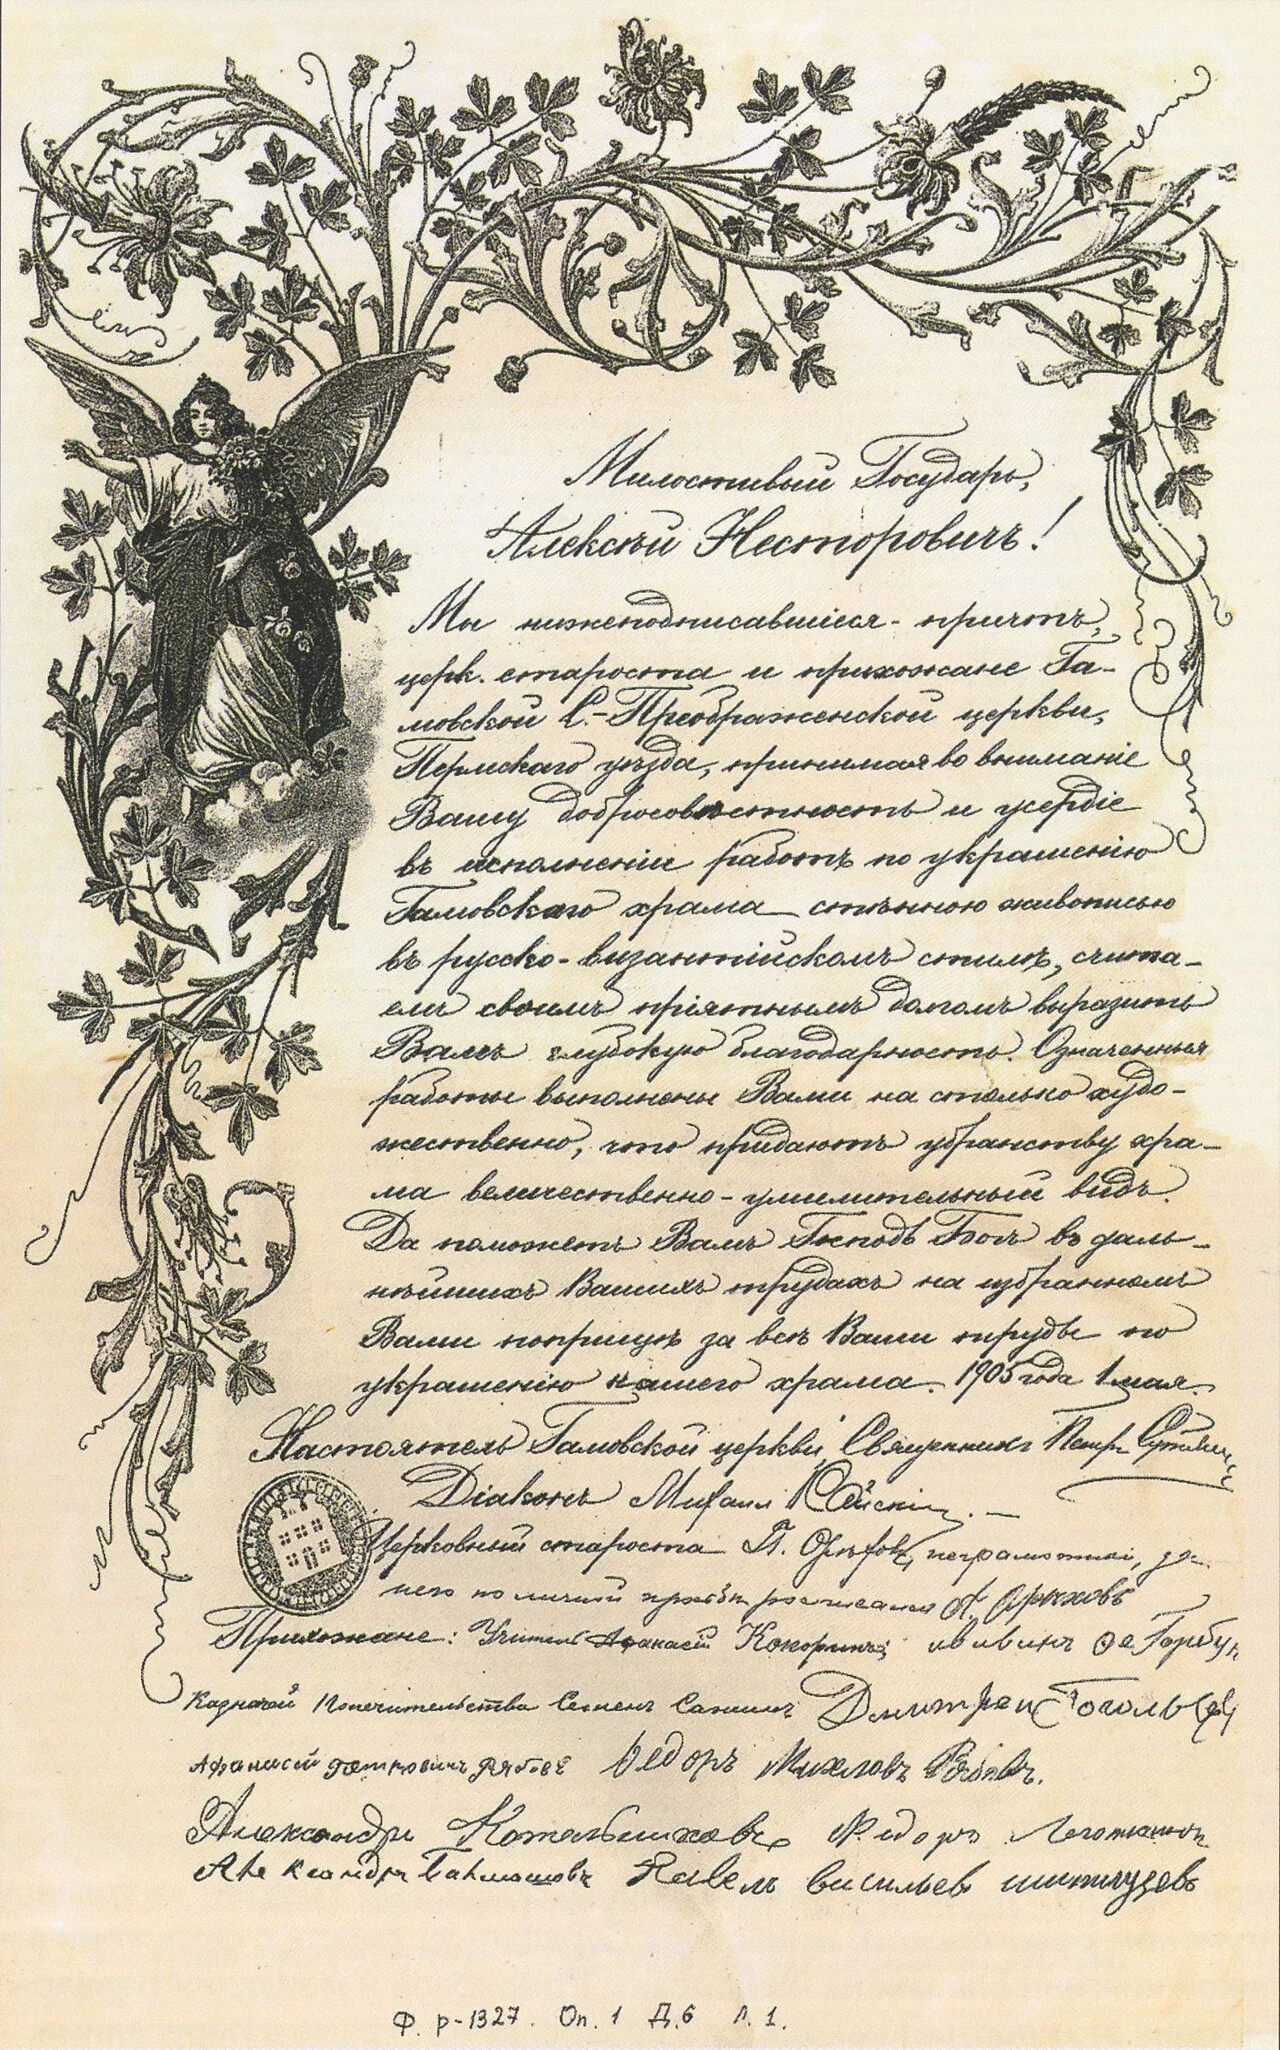 Милостивый Государь,
Алексѣй Несторовичъ!
Мы нижеподписавшіеся - причтъ,
церк. староста и прихожане Га-
мовской С.-Преображенской церкви,
Пермскаго уѣзда, принимая во вниманіе
Вашу добросовѣстность и усердіе
въ исполненіи работъ по украшенію
Гамовскаго храма стѣнною живописью
въ русско-византійскомъ стилѣ, счита-
емъ своимъ пріятнымъ долгомъ выразить
Вамъ глубокую благодарность. Означенныя
работы выполнены Вами на столько худо-
жественно, что придаютъ убранству хра-
ма величественно-умилительный видъ.
Да поможетъ Вамъ Господь Богъ въ даль-
нѣйшихъ Вашихъ трудахъ на избранномъ
Вами поприщѣ за всѣ Ваши труды по
украшенію нашего храма. 1905 года 1 мая.
Настоятель Гамовской церкви, Священникъ Петръ
Діаконъ Михаил
Церковный староста П. неграмотный, за
него по личной просьбѣ росписался А.
Прихожане: Учитель Афанасій Кокоринъ;
Казначей Попечительства Семенъ
Афанасій Федоръ
Александръ Котельниковъ Федоръ
Александръ Павелъ Васильевъ
Ф. р-1327. Оп. 1 Д. 6 Л. 1.